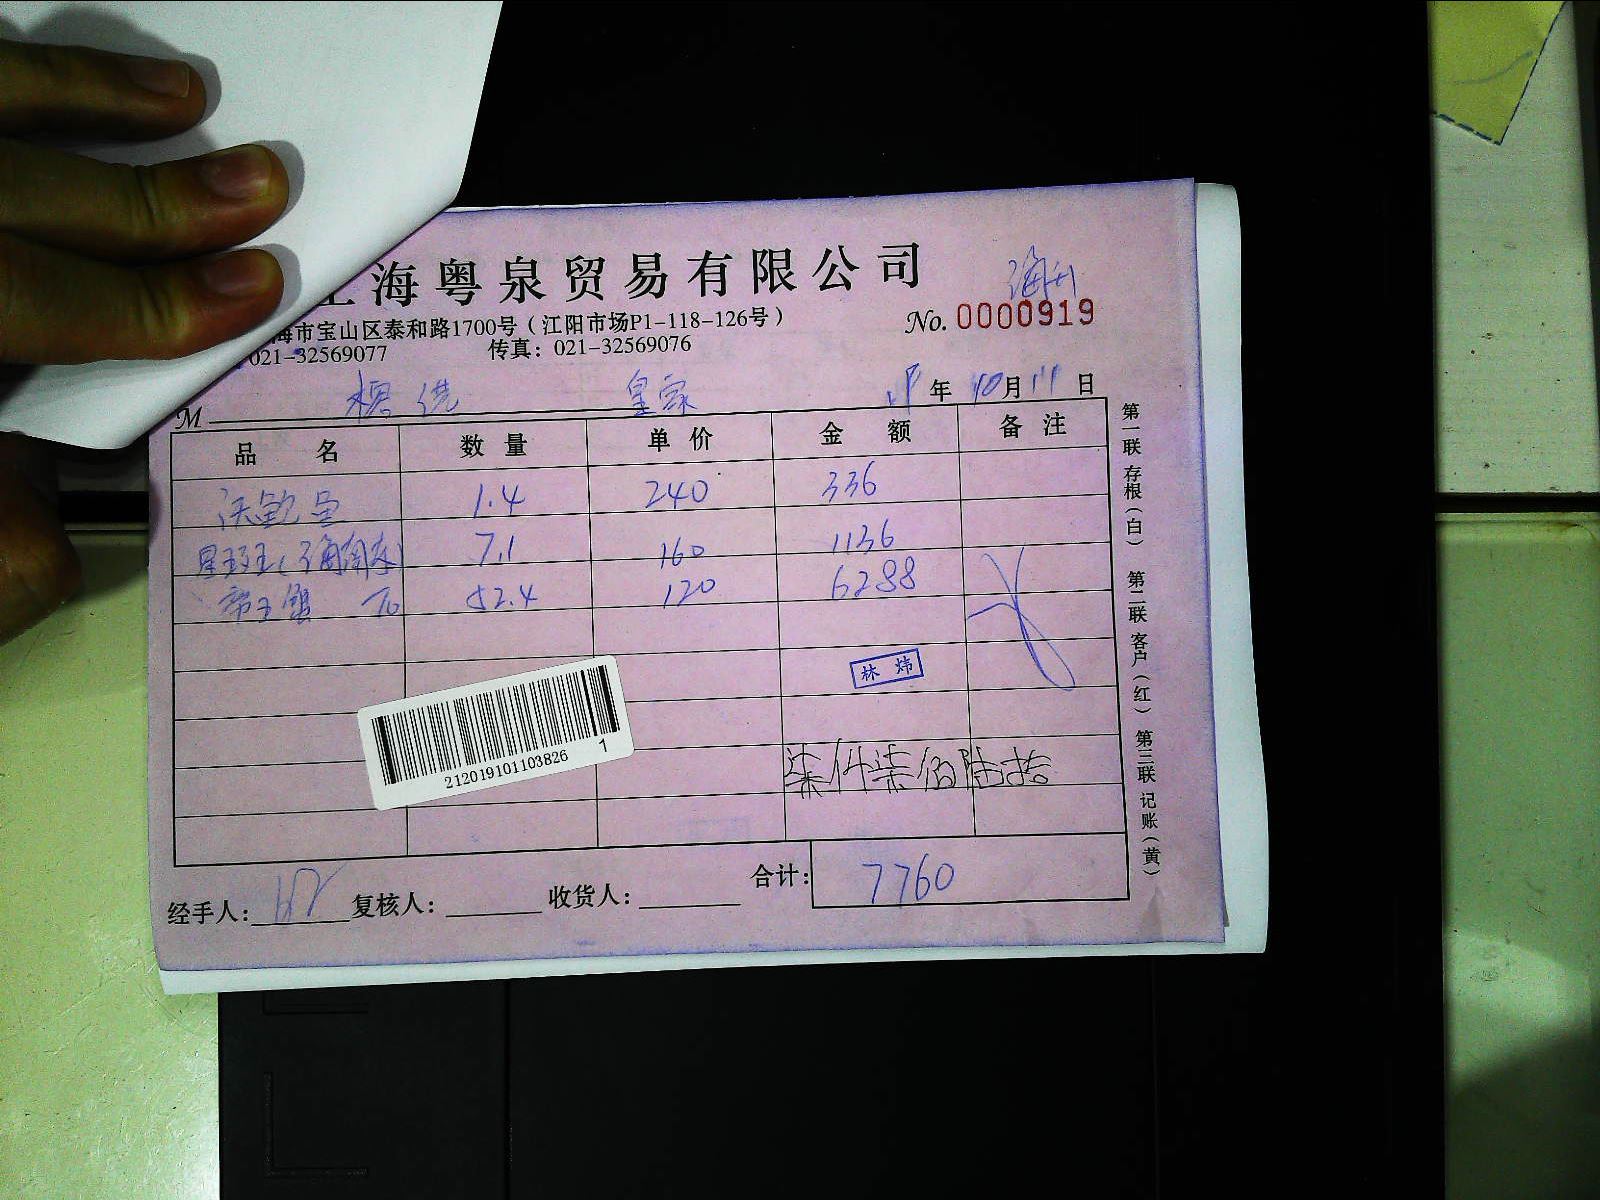 上海粤泉贸易有限公司
海升
海市宝山区泰和路1700号（江阳市场P1-118-126号）
No. 0000919
021-32569077 传真：021-32569076
M 皇家 年 10月11日
品 名 数 量 单 价 金 额 备 注
1.4 240 336
星斑王 7.1 160 1136
帝王蟹 52.4 120 6288
林 炜
212019101103826 1
柒仟柒佰陆拾
合计： 7760
经手人： 复核人： 收货人：
第一联 存根（白） 第二联 客户（红） 第三联 记账（黄）